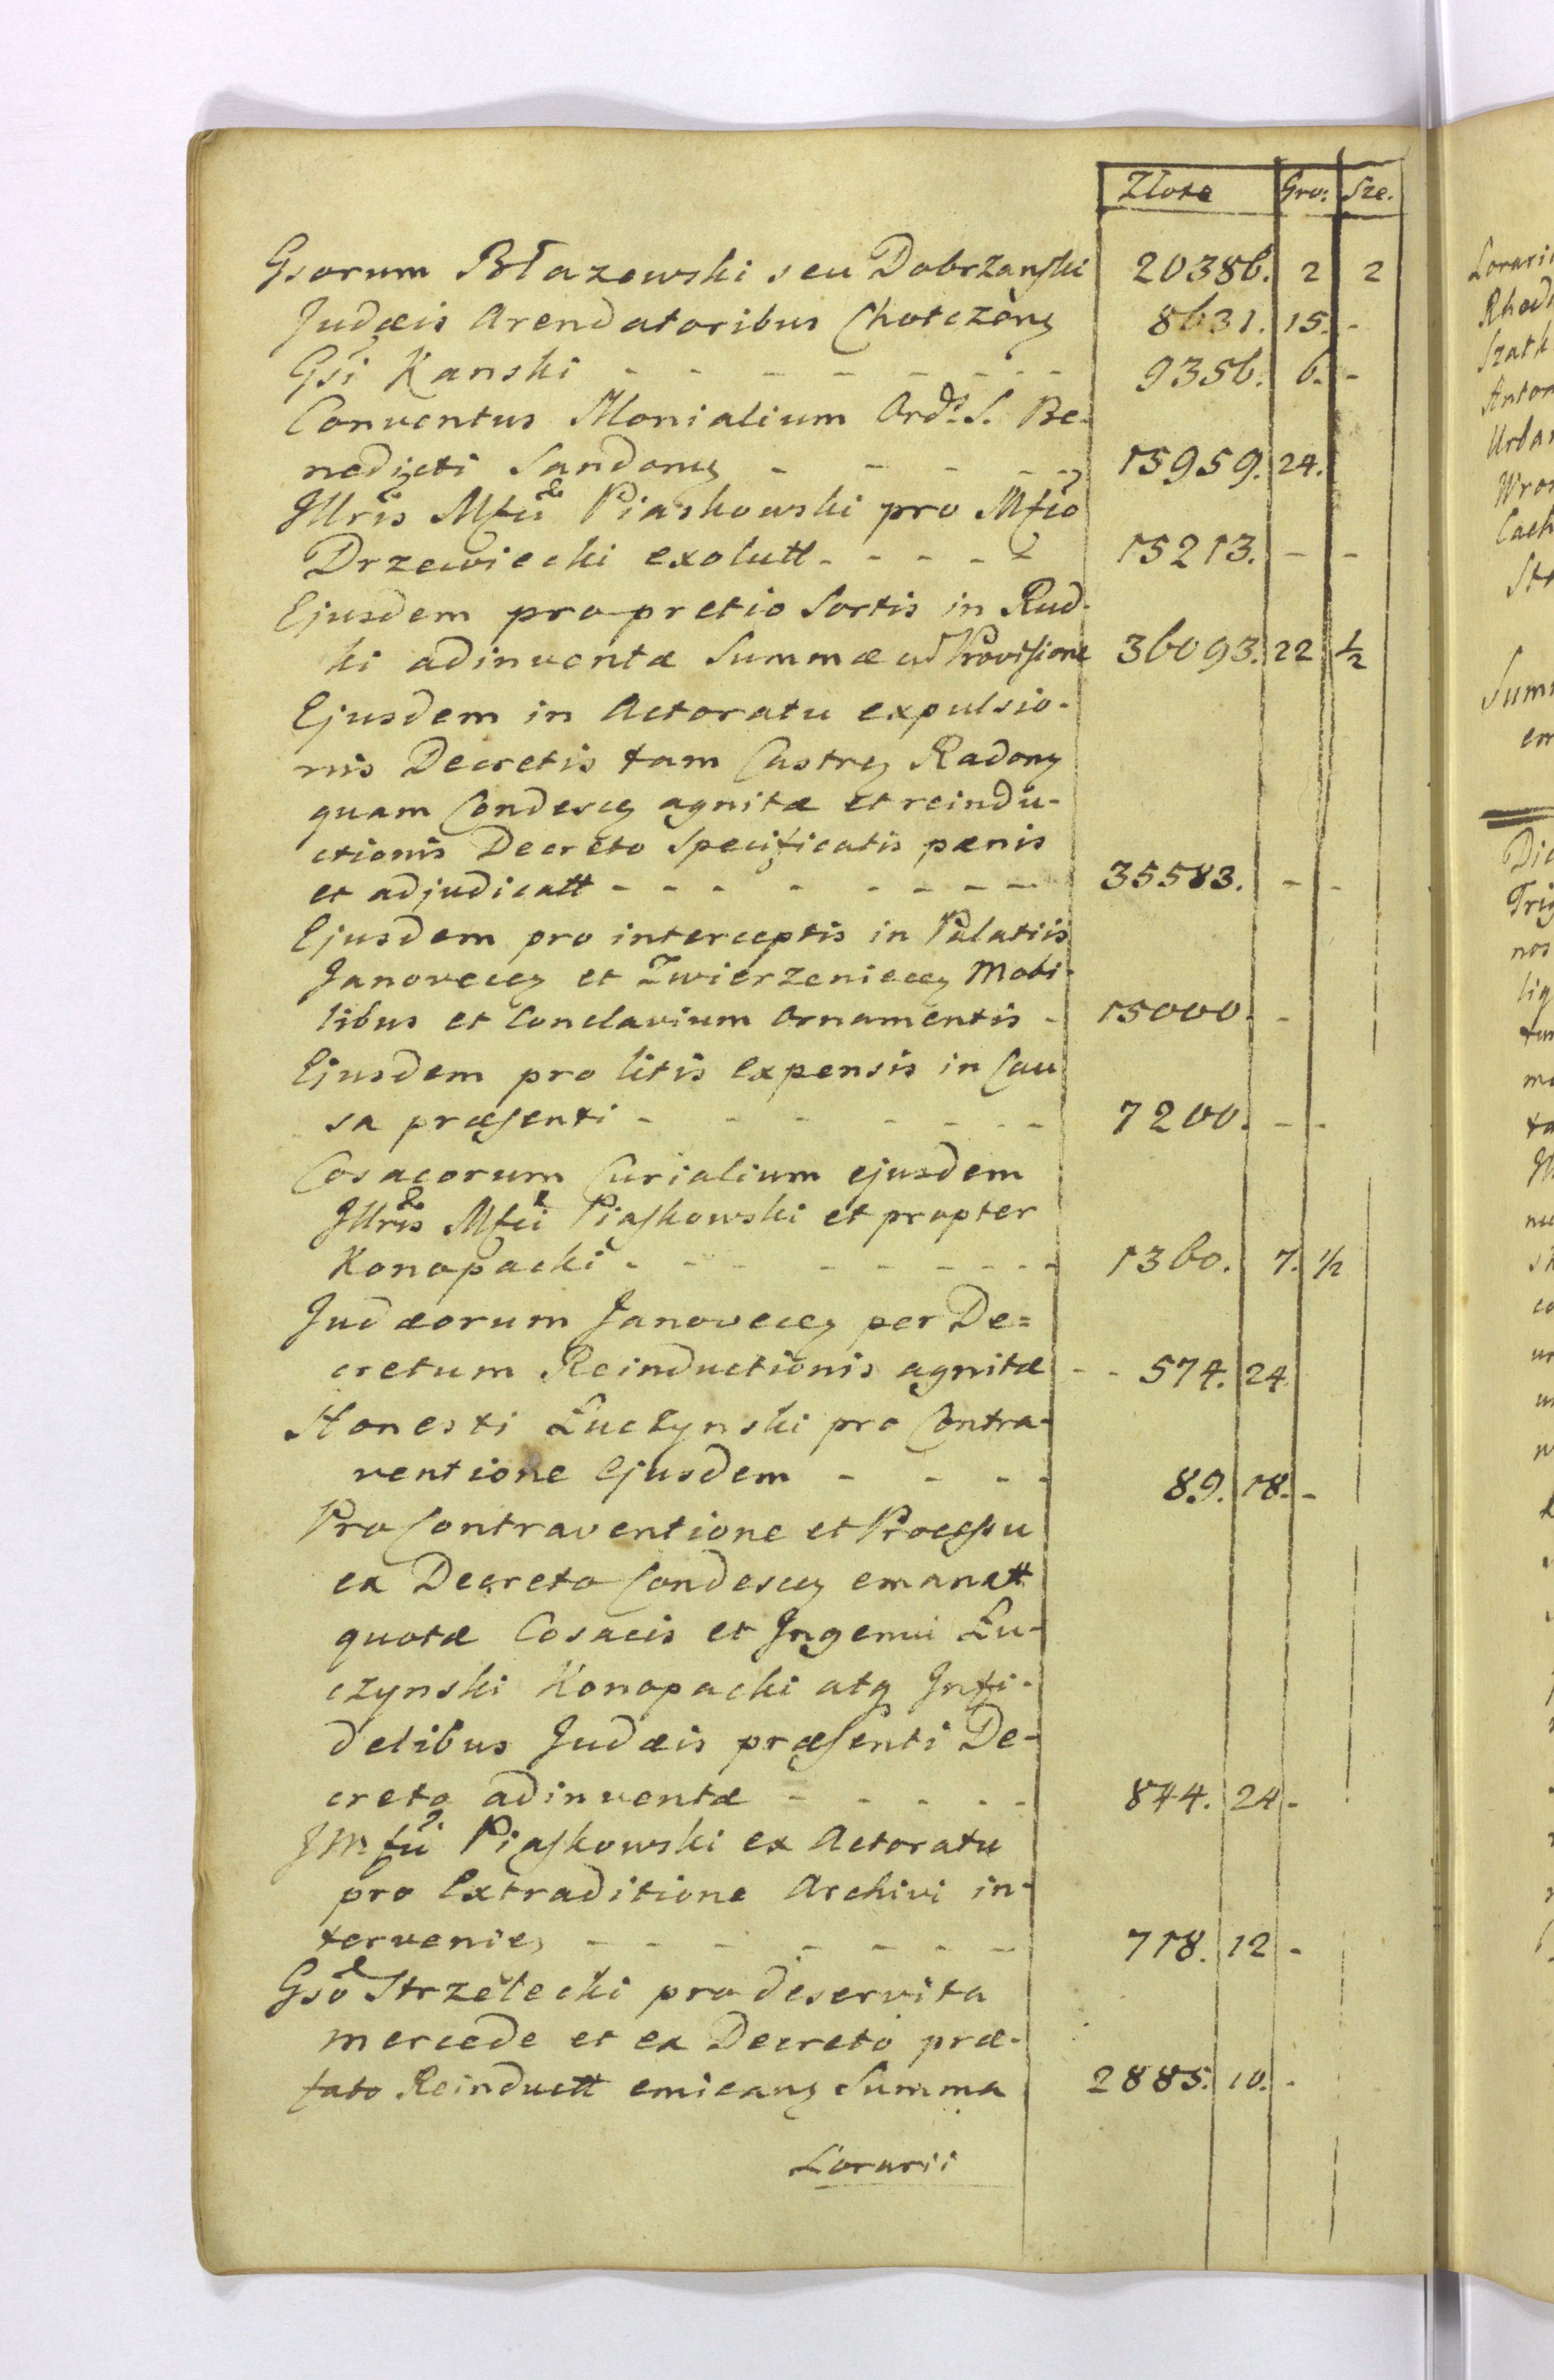 Złote Gro: Sze.
Gsorum Błazowski seu Dobrzanski 20386. 2 2
Judæis Arendatoribus Chotczeng 8631. 15. -
Gsi Kanski - - - - - - - - 9356. 6. -
Conventus Monialium Ord: S. Be-
nedicti Sandomg - - - - - 15959. 24.
Illris Mfci Piaskowski pro Mfco
Drzewiecki exolutt - - - - - 15213. - -
Ejusdem pro pretio Sortis in Rud-
ki adinventæ Summæ cu Provisione 36093. 22 ½
Ejusdem in Actoratu expulsio-
nis Decretis tam Castrg Radomg
quam Condescg agnitæ et reindu-
ctionis Decreto Specificatis pænis
et adjudicatt - - - - - - - - 35583. - -
Ejusdem pro interceptis in Palatiis
Janovecg et Zwierzeniecg Mobi-
libus et Conclavium Ornamentis - 15000. -
Ejusdem pro litis Expensis in Cau
sa præsenti - - - - - - - 7200. - -
Cosacorum Curialium ejusdem
Illris Mfci Piaskowski et propter
Konopacki - - - - - - - - - 1360. 7. 1/2
Judæorum Janovecg per De=
cretum Reinductionis agnitæ - - 574. 24
Honesti Łuczynski pro Contra-
ventione Ejusdem - - - - 89. 18. -
Pro Contraventione et Processu
ex Decreto Condescg emanatt
quotæ Cosacis et Ingenui Łu-
czynski Konopacki atq Infi-
delibus Judæis præsenti De-
creto adinventæ - - - - - 844. 24 -
JMfci Piaskowski ex Actoratu
pro Extraditione Archivi in-
terveni - - - - - - - 718. 12 -
Gso Strzelecki pro deservita
mercede et ex Decreto præ-
fato Reinductt emicang Summa 2885. 10. -
Lorarii